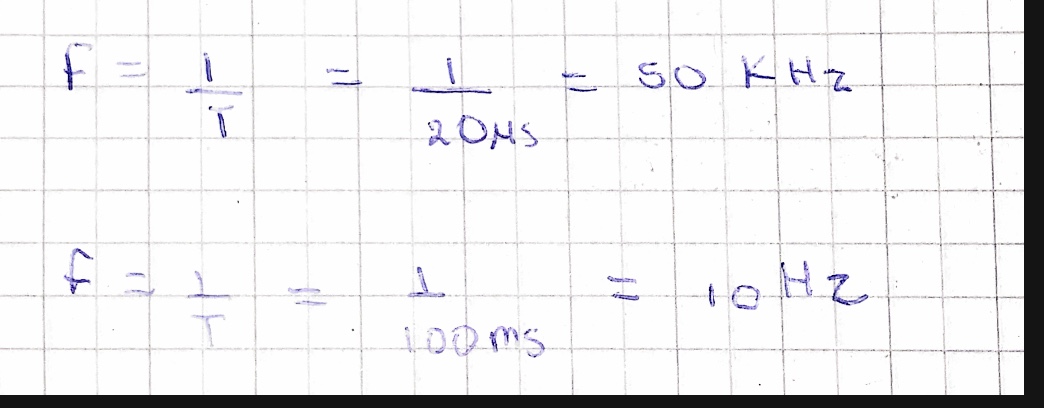 f = 1/T = 1/20μs = 50 KHz
f = 1/T = 1/100ms = 10 Hz